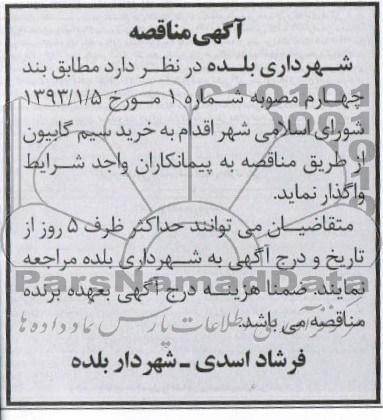 آگهی مناقصه
شهرداری بلده در نظر دارد مطابق بند
چهارم مصوبه شماره ۱ مورخ ۱۳۹۳/۱/۵
شورای اسلامی شهر اقدام به خرید سیم گابیون
از طریق مناقصه به پیمانکاران واجد شرایط
واگذار نماید.
متقاضیان می توانند حداکثر ظرف ۵ روز از
تاریخ و درج آگهی به شهرداری بلده مراجعه
ParsNamadData
نمایند. ضمنا هزینه درج آگهی بعهده برنده
مناقصه می باشد.
فرشاد اسدی ـ شهردار بلده